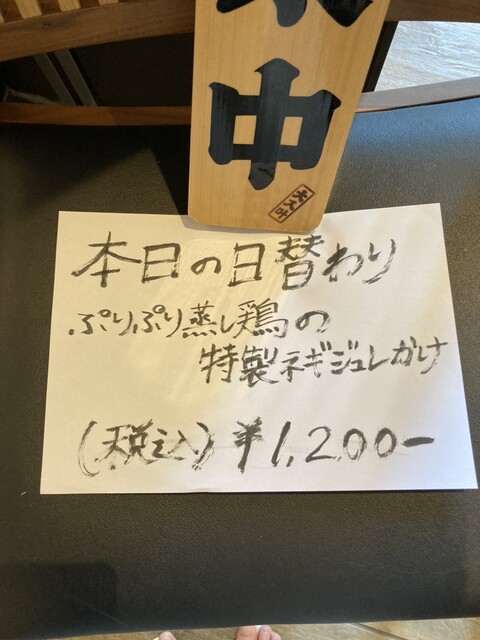 中
本日の日替わり
ぷりぷり蒸し鶏の
特製ネギジュレがけ
(税込) ¥1,200-